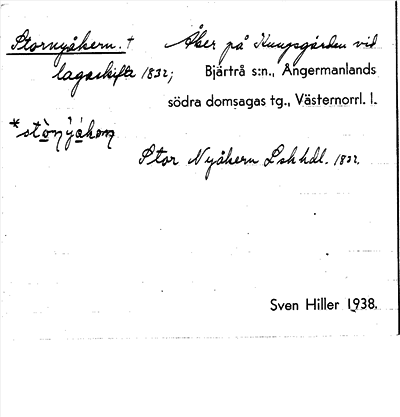 Stornyåkern. † Åker på Kungsgården vid
lagaskifte 1832; Bjärtrå s:n., Ångermanlands
södra domsagas tg., Västernorrl. l.
*stò̱n'yá̱kaɲ
Stor Nyåkern Lskhdl. 1832.
Sven Hiller 1938.